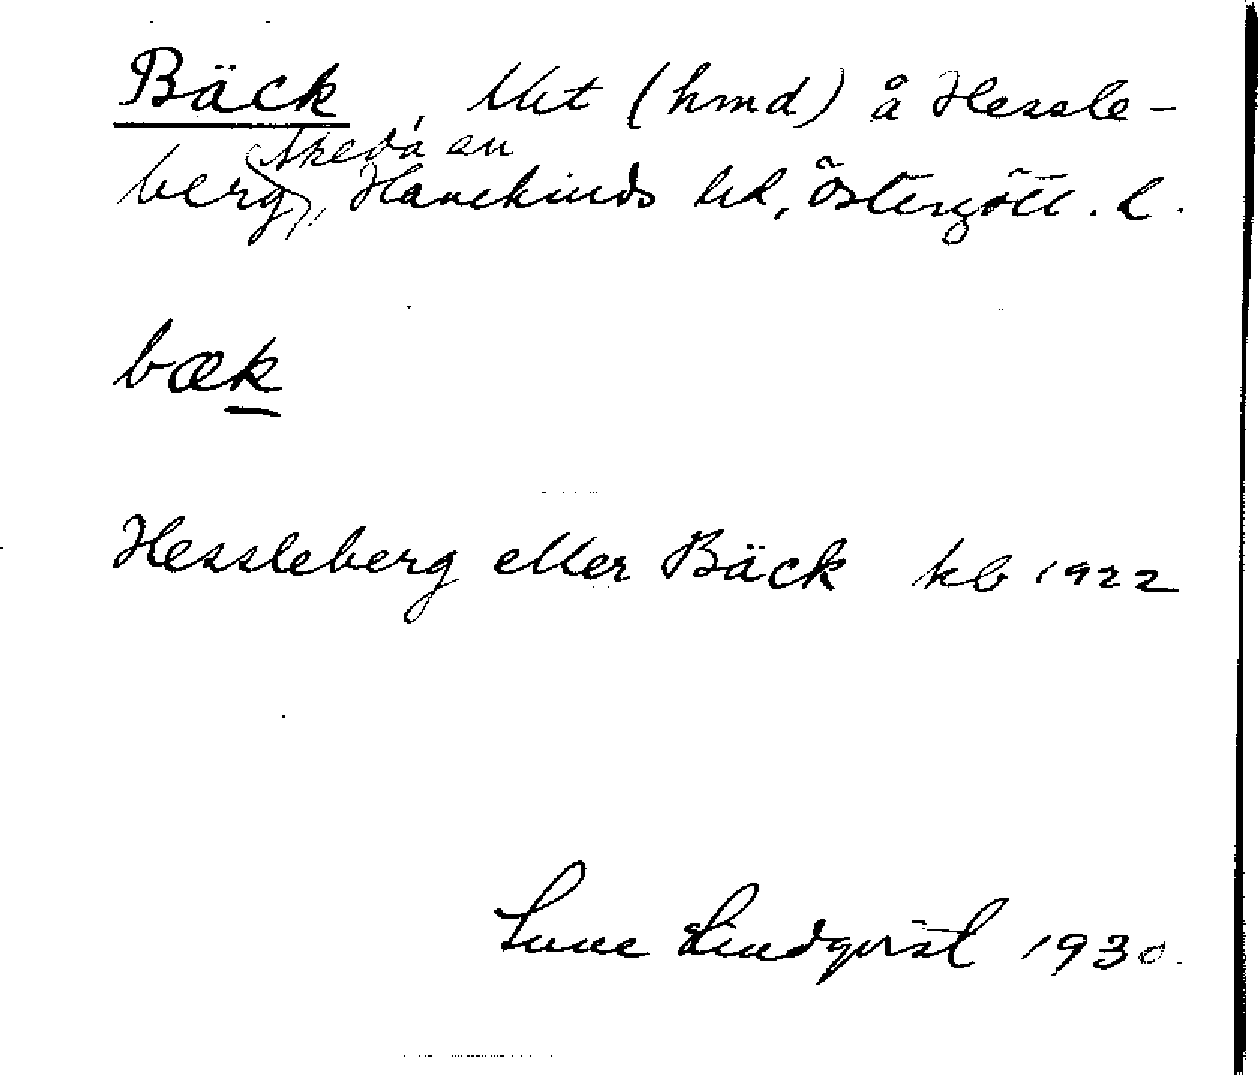 Bäck, Utst (hmd) å Hessle-
Skeda sn
berg, Hanekinds hd, Östergötl. l.
bæk
Hessleberg eller Bäck kb 1922
Sune Lindqvist 1930.